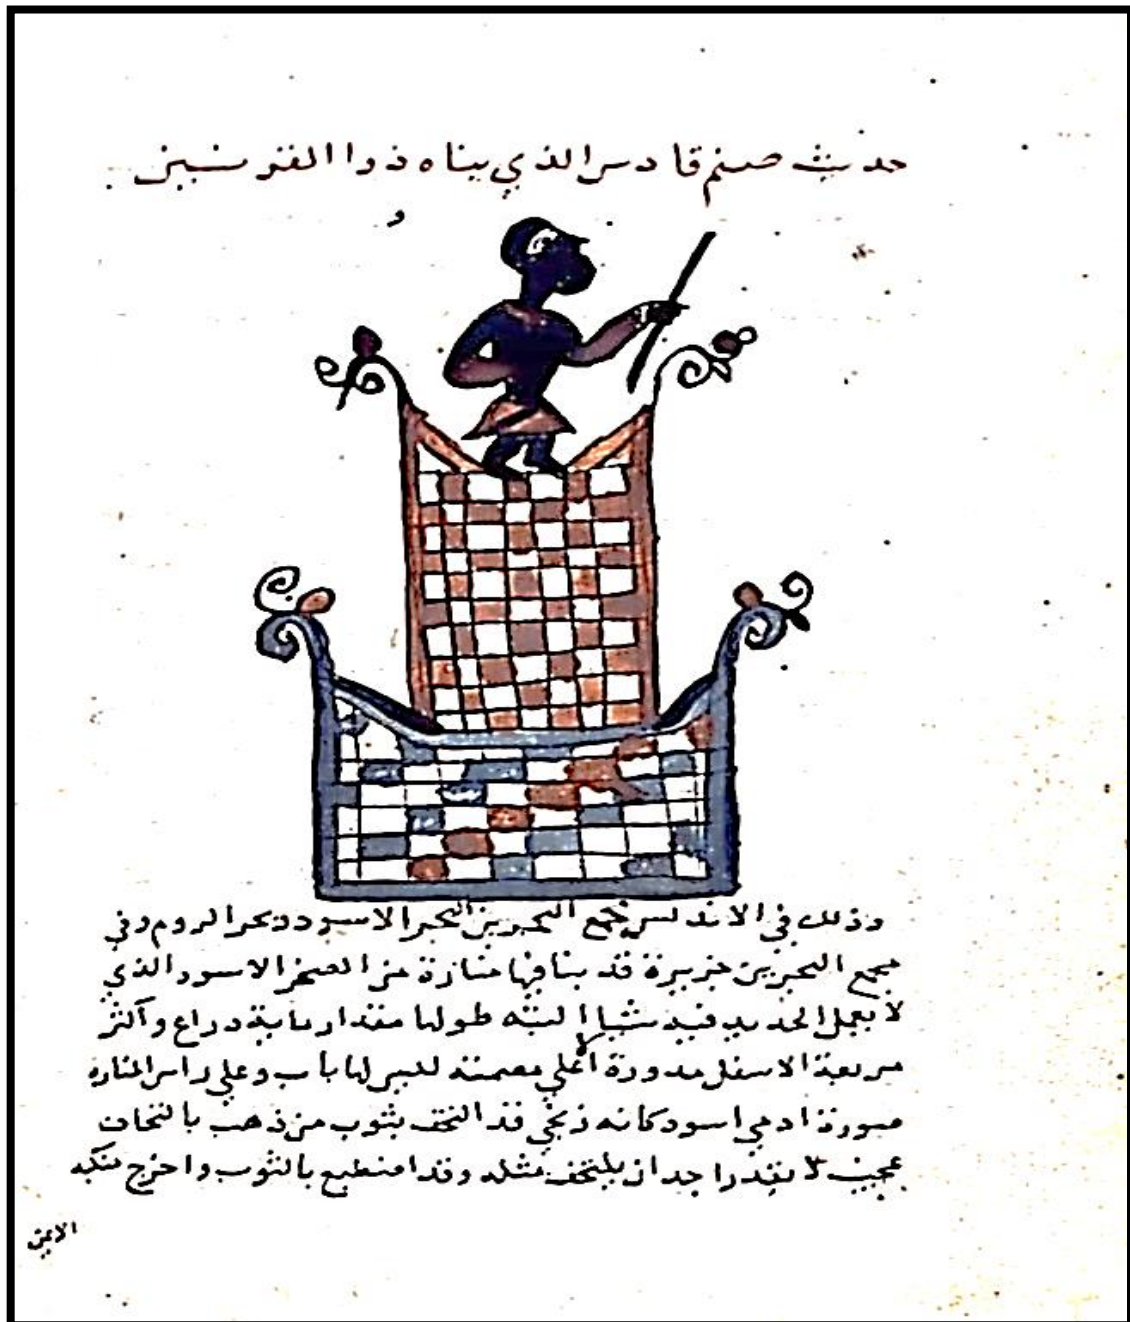 حديث صنم قادس الذي بناه ذوا القرنين
وذلك في الاندلس مجمع البحرين البحر الاسود وبحر الروم وفي
مجمع البحرين جزيرة قد بنا فيها منارة من الصخر الاسود الذي
لا يعمل الحديد فيه شيا البته طولها مقدار ماية دراع وآكثر
مربعة الاسفل مدورة الاعلي مصمته ليس لها باب وعلي راس المناره
صورة ادمي اسود كانه زنجي قد التحف بثوب من ذهب بالتحاف
عجيب لا يقدر احد ان يلتحف مثله وقد اضطبع بالثوب واخرج منكبه
الايمن